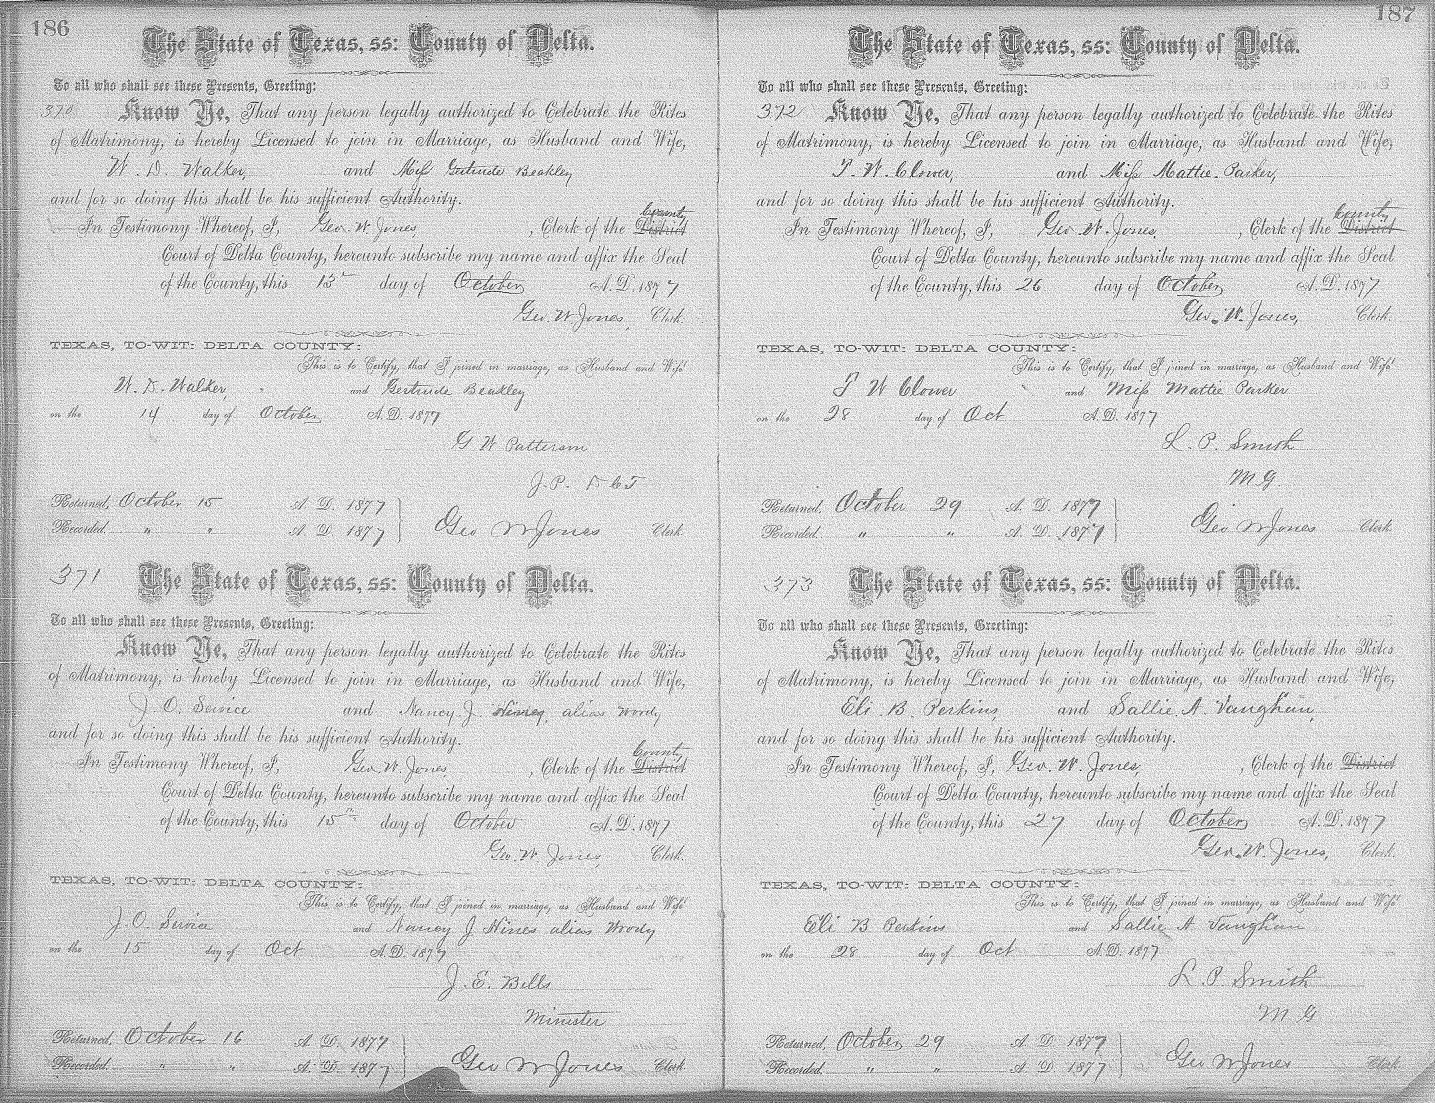 186
The State of Texas, ss: County of Delta.
To all who shall see these Presents, Greeting:
370 Know Ye, That any person legally authorized to Celebrate the Rites
of Matrimony, is hereby Licensed to join in Marriage, as Husband and Wife,
W. D. Walker, and Miss Gertrude Beakley
and for so doing this shall be his sufficient Authority.
County
In Testimony Whereof, I, Geo. W. Jones, , Clerk of the District
Court of Delta County, hereunto subscribe my name and affix the Seal
of the County, this 13 day of October A.D. 1877
Geo. W Jones, Clerk.
TEXAS, TO-WIT: DELTA COUNTY:
This is to Certify, that I joined in marriage, as Husband and Wife
W. D. Walker, and Gertrude Beakley
on the 14 day of October A.D. 1877
G W Patterson
J. P. D C T
Returned, October 15 A. D. 1877
Recorded " " A. D. 1877 Geo W Jones Clerk
371 The State of Texas, ss: County of Delta.
To all who shall see these Presents, Greeting:
Know Ye, That any person legally authorized to Celebrate the Rites
of Matrimony, is hereby Licensed to join in Marriage, as Husband and Wife,
J O. and Nancy J. Hines, alias Wordy
and for so doing this shall be his sufficient Authority.
County
In Testimony Whereof, I, Geo. W. Jones, , Clerk of the District
Court of Delta County, hereunto subscribe my name and affix the Seal
of the County, this 15 day of October A.D. 1877
Geo. W Jones, Clerk.
TEXAS, TO-WIT: DELTA COUNTY:
This is to Certify, that I joined in marriage, as Husband and Wife
J. O. and Nancy J Hines alias Wordy
on the 15 day of Oct A.D. 1877
J. E. Bills
Minister
Returned, October 16 A. D. 1877
Recorded " " A. D. 1877 Geo W Jones Clerk
187
The State of Texas, ss: County of Delta.
To all who shall see these Presents, Greeting:
372 Know Ye, That any person legally authorized to Celebrate the Rites
of Matrimony, is hereby Licensed to join in Marriage, as Husband and Wife,
T. W. Clower, and Miss Mattie Parker,
and for so doing this shall be his sufficient Authority.
County
In Testimony Whereof, I, Geo. W. Jones, , Clerk of the District
Court of Delta County, hereunto subscribe my name and affix the Seal
of the County, this 26 day of October A.D. 1877
Geo. W. Jones, Clerk.
TEXAS, TO-WIT: DELTA COUNTY:
This is to Certify, that I joined in marriage, as Husband and Wife
T W Clower and Miss Mattie Parker
on the 28 day of Oct A.D. 1877
L. P. Smith
M G
Returned, October 29 A. D. 1877
Recorded " " A. D. 1877 Geo W Jones Clerk
373 The State of Texas, ss: County of Delta.
To all who shall see these Presents, Greeting:
Know Ye, That any person legally authorized to Celebrate the Rites
of Matrimony, is hereby Licensed to join in Marriage, as Husband and Wife,
Eli. B. Perkins, and Sallie A. Vaughan,
and for so doing this shall be his sufficient Authority.
In Testimony Whereof, I, Geo. W. Jones, , Clerk of the District
Court of Delta County, hereunto subscribe my name and affix the Seal
of the County, this 27 day of October A.D. 1877
Geo. W. Jones, Clerk.
TEXAS, TO-WIT: DELTA COUNTY:
This is to Certify, that I joined in marriage, as Husband and Wife
Eli B Perkins and Sallie A Vaughan
on the 28 day of Oct A.D. 1877
L. P. Smith
M G
Returned, October 29 A. D. 1877
Recorded " " A. D. 1877 Geo W Jones Clerk